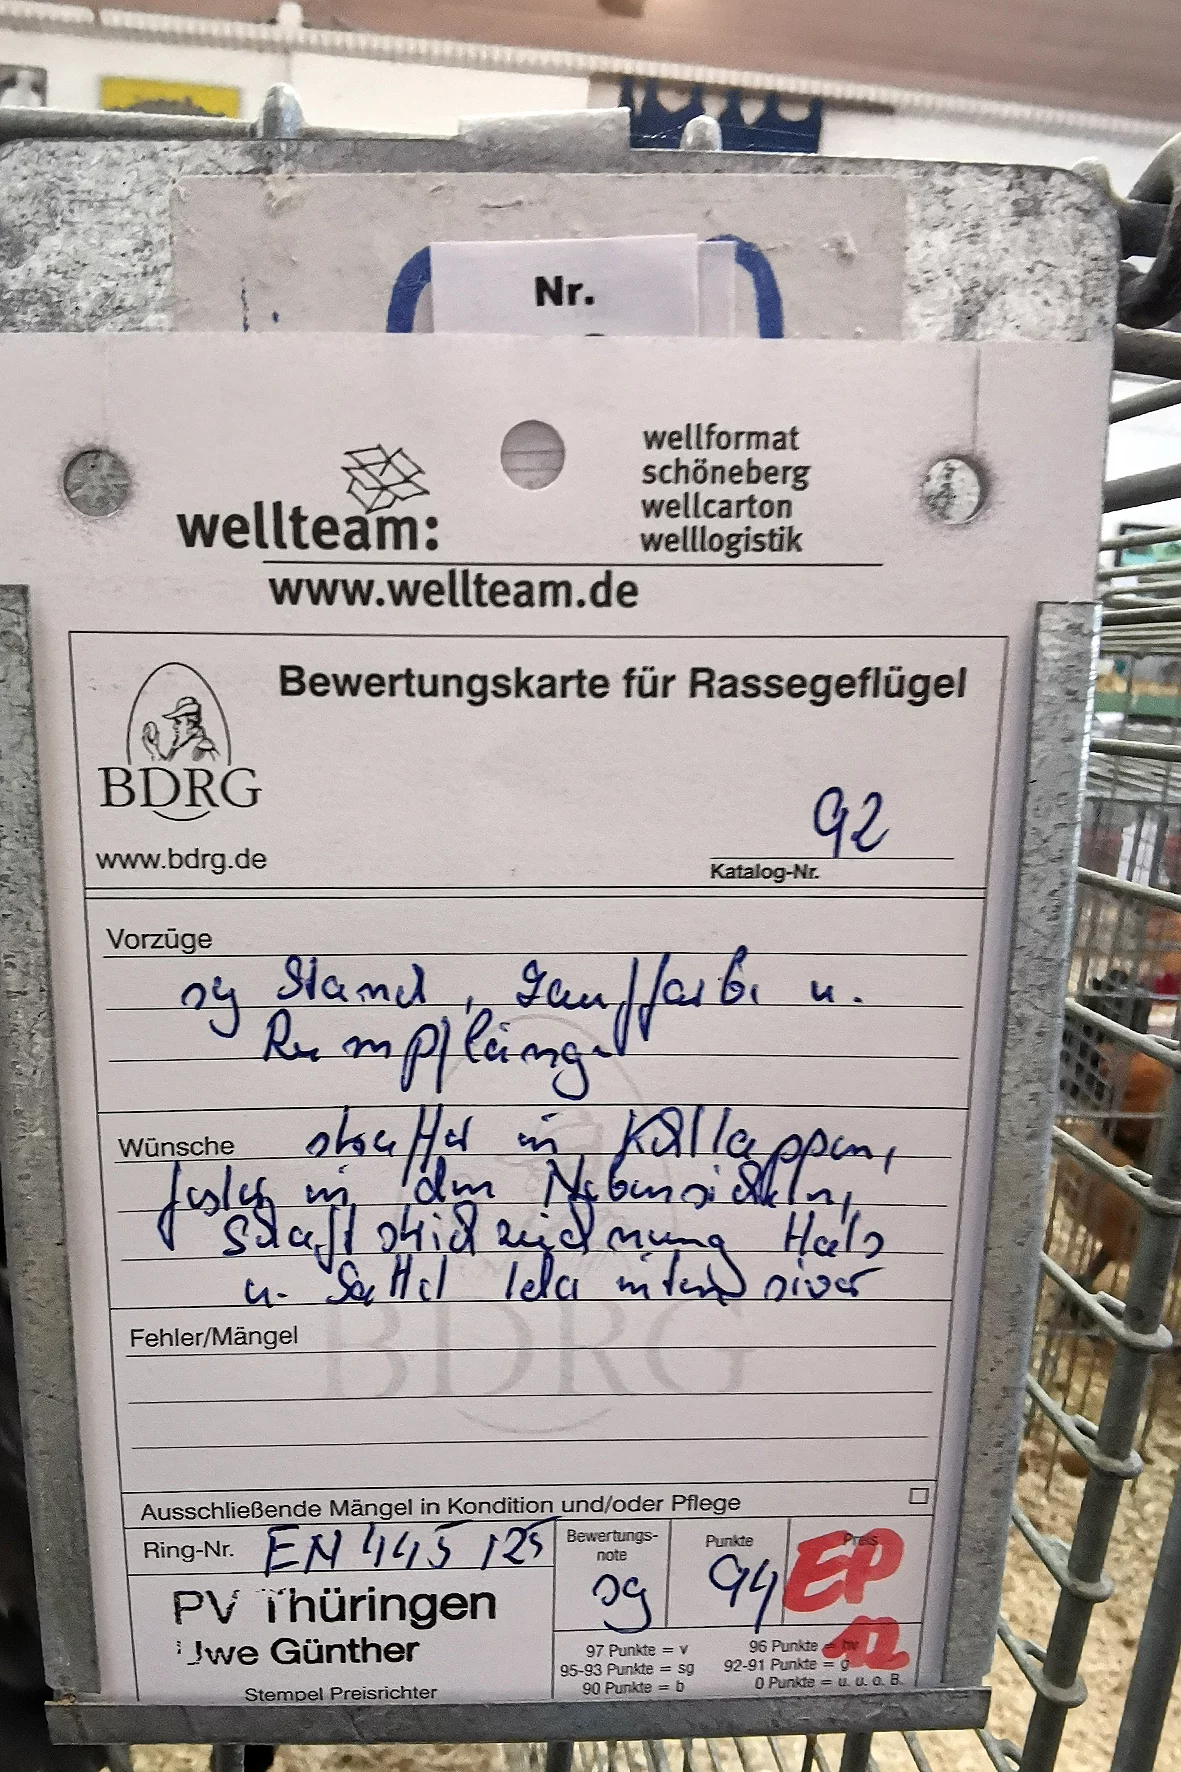 Nr.
wellteam:
wellformat
schöneberg
wellcarton
welllogistik
www.wellteam.de
Bewertungskarte für Rassegeflügel
BDRG
www.bdrg.de
92
Katalog-Nr.
Vorzüge
sg Stand, Lauffarbe u.
Rumpflänge
Wünsche straffer in Kehllappen,
fester in den Nebensicheln,
Schaftstrichzeichnung Hals
u. Sattel intensiver
BDRG
Fehler/Mängel
Ausschließende Mängel in Kondition und/oder Pflege
Ring-Nr. EN 445 125
Bewertungs-
note
sg
Punkte
94
Preis
EP
12
PV Thüringen
Uwe Günther
Stempel Preisrichter
97 Punkte = v 96 Punkte = hv
95-93 Punkte = sg 92-91 Punkte = g
90 Punkte = b 0 Punkte = u. u. o. B.